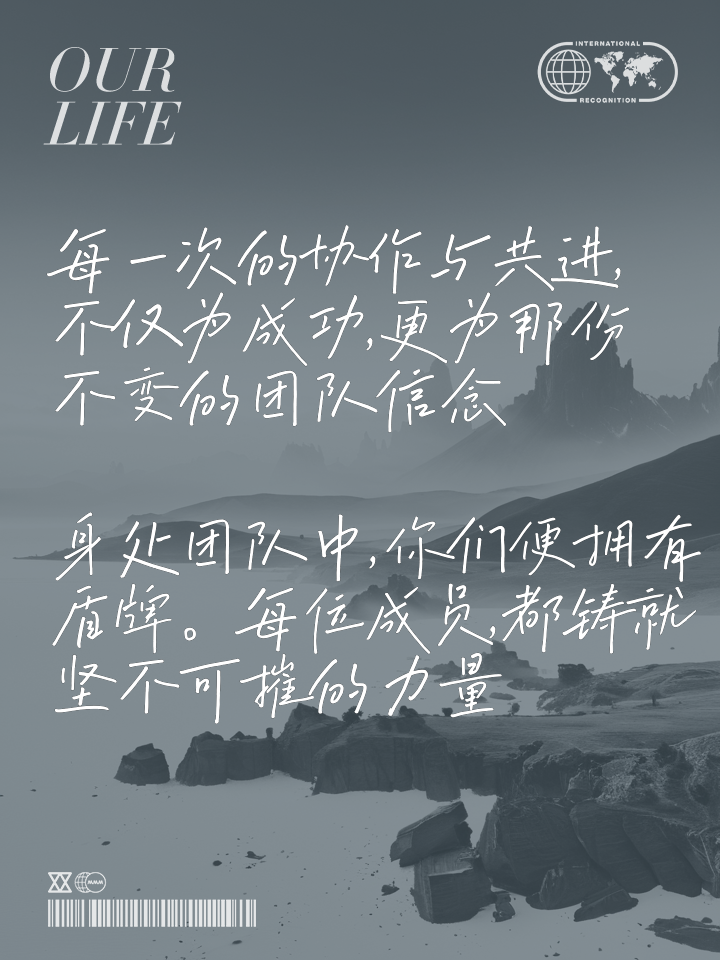 OUR
LIFE
INTERNATIONAL
RECOGNITION
每一次的协作与共进,
不仅为成功,更为那份
不变的团队信念
身处团队中,你们便拥有
盾牌。每位成员,都铸就
坚不可摧的力量
MMM